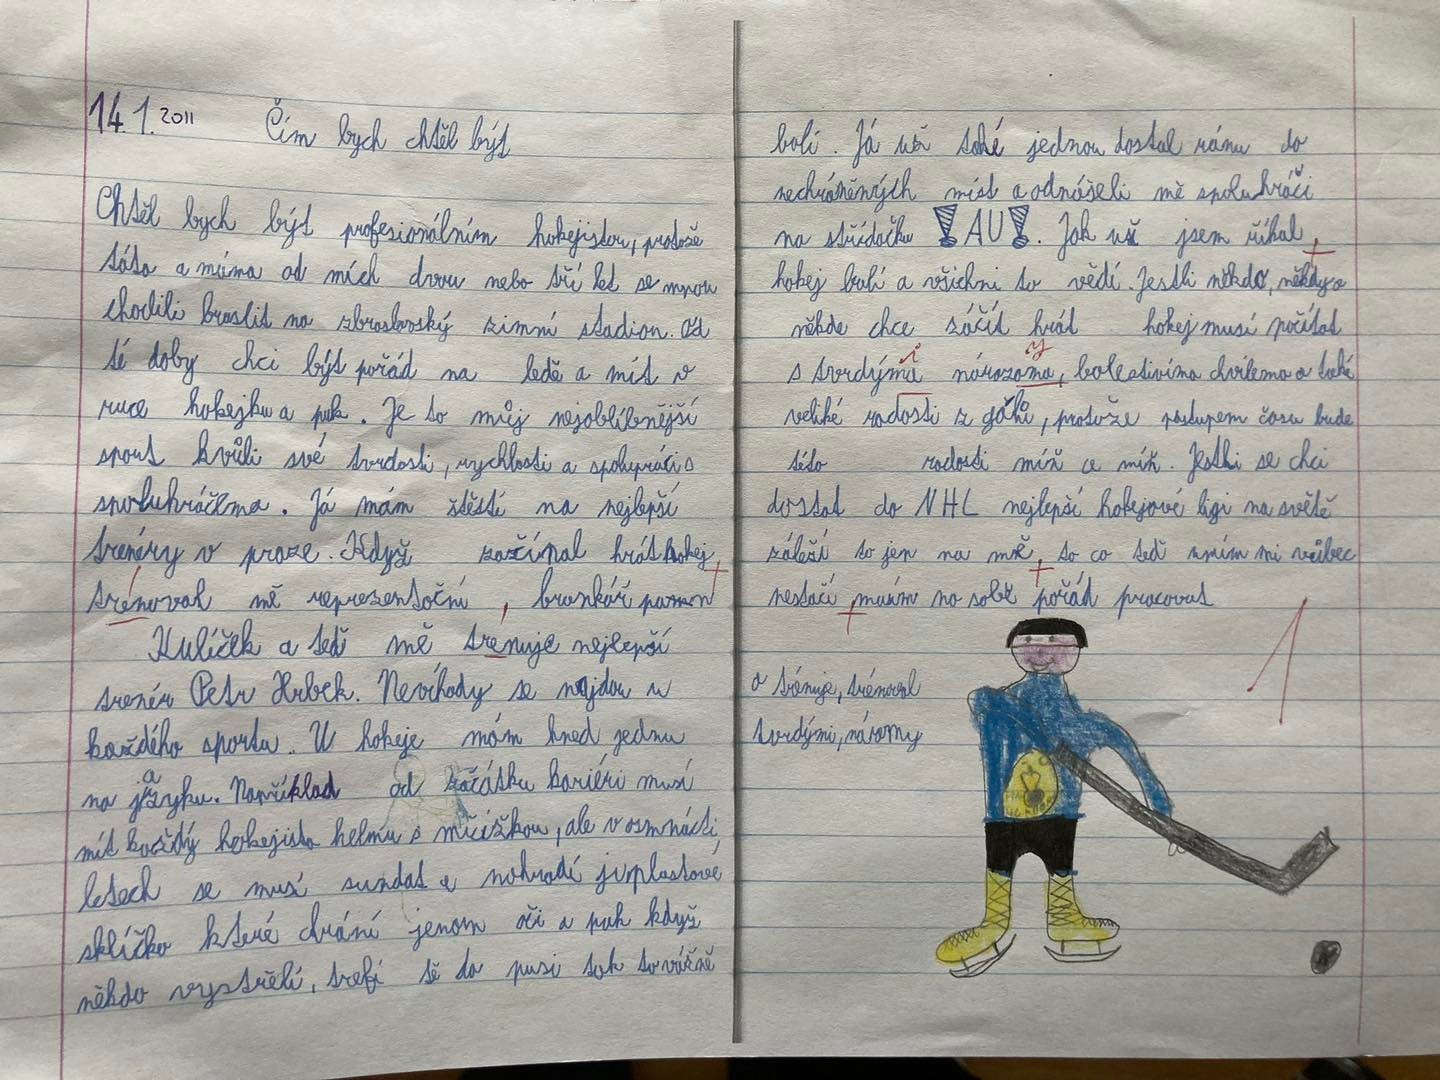 14.1.2011 Čím bych chtěl být
Chtěl bych být profesionálním hokejistou, protože
táta a máma od mích dvou nebo tří let se mnou
chodili bruslit na zbraslavský zimní stadion. Od
té doby chci být pořád na ledě a mít v
ruce hokejku a puk. Je to můj nejoblíbnější
sport kvůli své tvrdosti, rychlosti a spolupráci s
spoluhráčema. Já mám štěstí na nejlepší
trenéry v praze. Když začínal hrát hokej
trénoval mě reprezentační , brankář paman
Kulíček a teď mě trenuje nejlepší
trenér Petr Hrbek. Nevíhody se najdou u
každého sportu. U hokeje mám hned jednu
na jazyku. Například od začátku kariéri musí
mít každý hokejista helmu s mřížkou, ale v osmnácti
letech se musí sundat a nahradí ji plastové
sklíčko které chrání jenom oči a pak když
někdo vystřelí, trefí tě do pusi tak to vážně
bolí. Já už také jednou dostal ránu do
nechráněných míst a odnášeli mě spoluhráči
na střídačku !AU!. Jak už jsem říkal
hokej bolí a všichni to vědí. Jestli někdo, někdy a
někde chce záčít hrát hokej musí počítat
s tvrdýma i nárazama y, bolestivíma chvílema a také
veliké radosti z gólů, protože postupem času bude
této radosti míň a míň. Jestli se chci
dostat do NHL nejlepší hokejové ligi na světě
záleží to jen na mě, to co teď umím mi vůbec
nestačí musím na sobě pořád pracovat
1
o trénuje, trénoval
tvrdými, nárazy